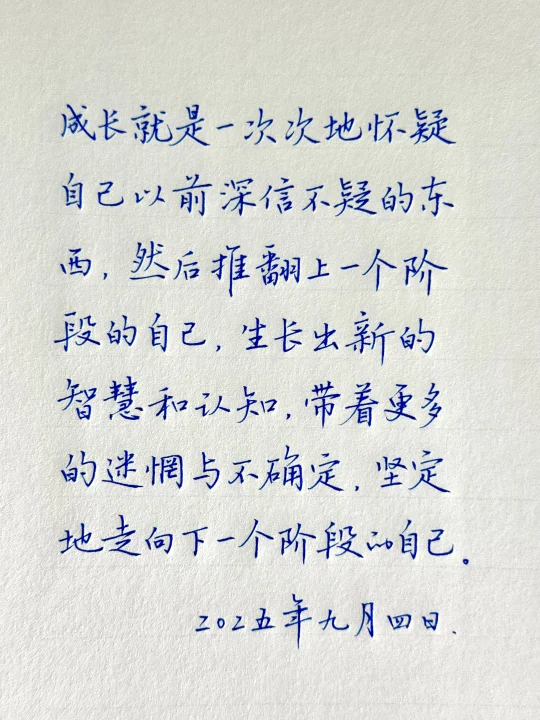 成长就是一次次地怀疑
自己以前深信不疑的东
西，然后推翻上一个阶
段的自己，生长出新的
智慧和认知，带着更多
的迷惘与不确定，坚定
地走向下一个阶段的自己。
2025年九月四日.